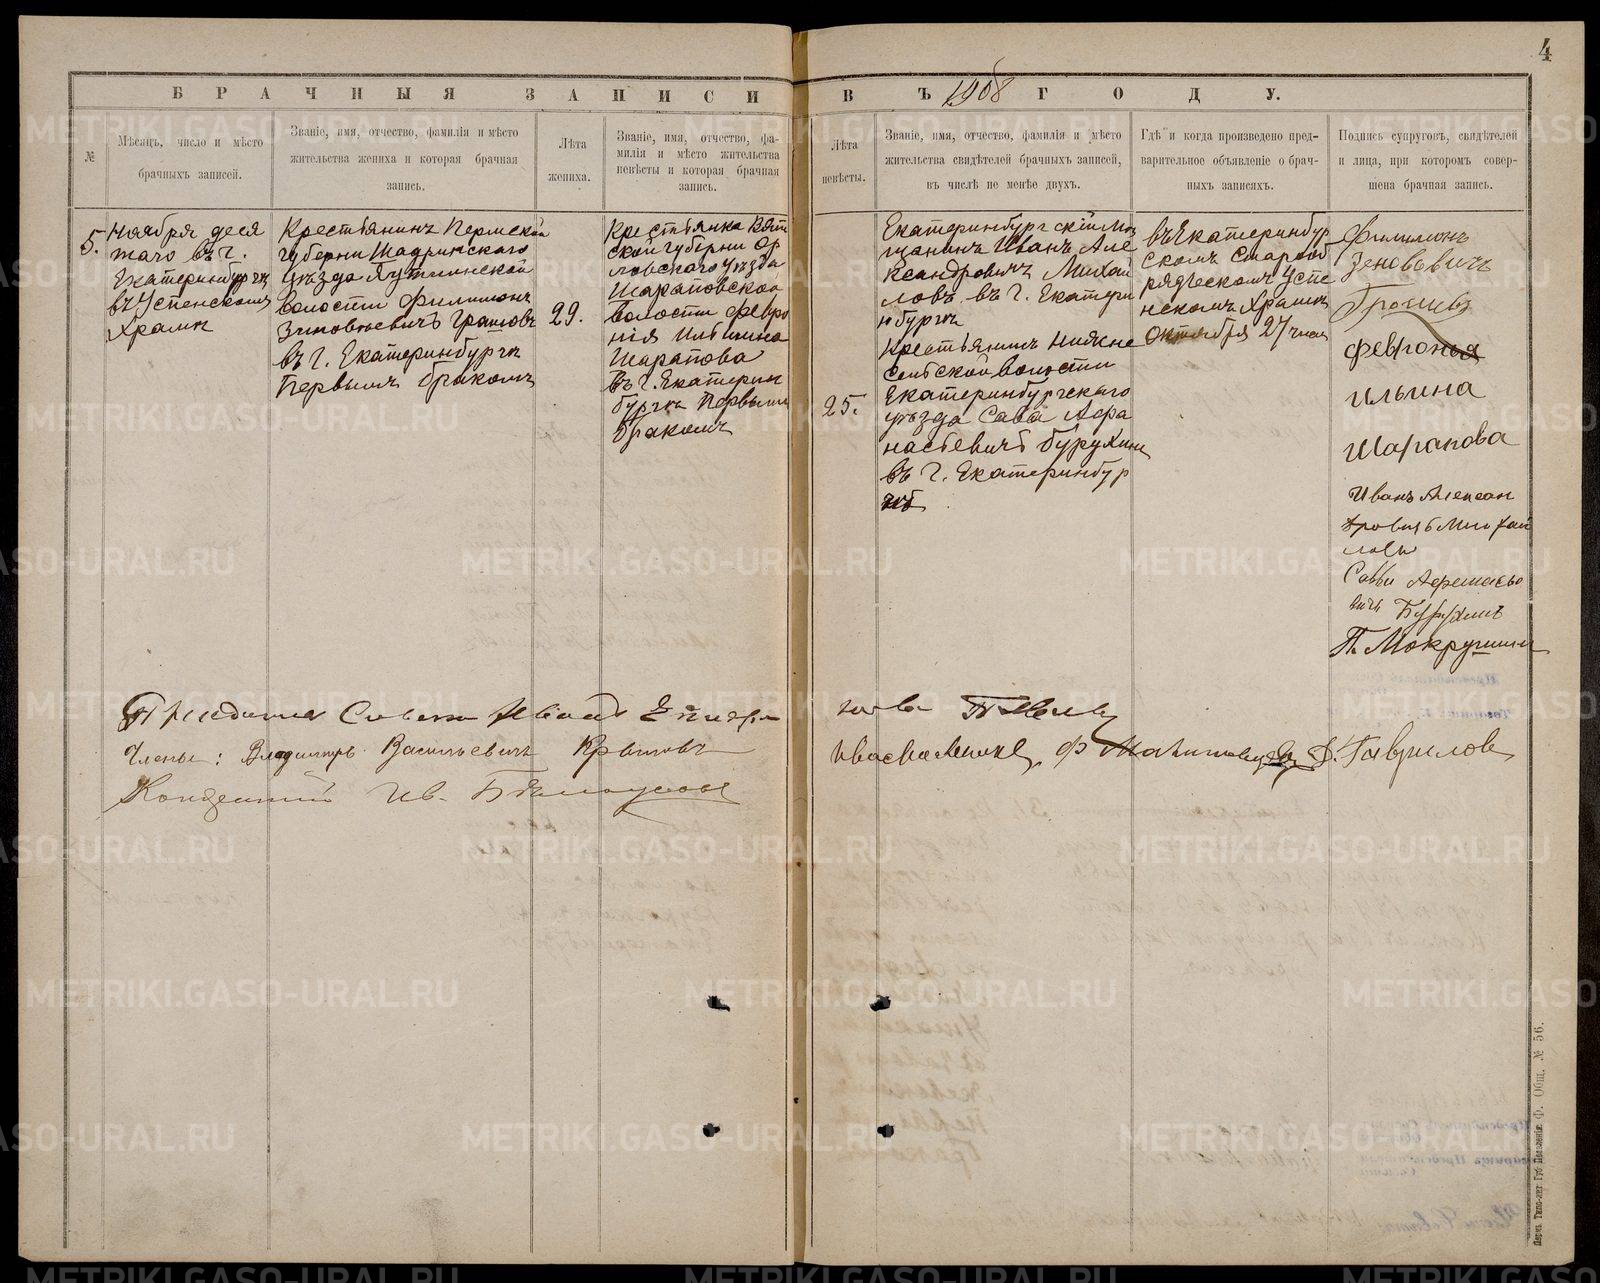 4
БРАЧНЫЯ ЗАПИСИ ВЪ 1908 ГОДУ.
№
Мѣсяцъ, число и мѣсто
брачныхъ записей.
Званіе, имя, отчество, фамилія и мѣсто
жительства жениха и которая брачная
запись.
Лѣта
жениха.
Званіе, имя, отчество, фа-
милія и мѣсто жительства
невѣсты и которая брачная
запись.
Лѣта
невѣсты.
Званіе, имя, отчество, фамилія и мѣсто
жительства свидѣтелей брачныхъ записей,
въ числѣ не менѣе двухъ.
Гдѣ и когда произведено пред-
варительное объявленіе о брач-
ныхъ записяхъ.
Подпись супруговъ, свидѣтелей
и лица, при которомъ совер-
шена брачная запись.
5.
Ноября деся
таго въ г.
Екатеринбургѣ
въ Успенскомъ
Храмѣ
Крестьянинъ Пермской
губерни Шадринскаго
уѣзда
волости Филимонъ
Зиновьевичъ
въ г. Екатеринбургѣ
Первымъ бракомъ
29.
Крестьянка Вят
ской губерни Ор
ловскаго уѣзда
Шараповской
волости Февро
нія Ильина
Шарапова
въ г. Екатерин
бургѣ Первымъ
бракомъ
25.
Екатеринбургскій Мѣ
щанинъ Иванъ Але
ксандровичъ Михай
ловъ въ г. Екатери
нбургѣ
Крестьянинъ Нижне
волости
Екатеринбургскаго
уѣзда Сава Афа
насьевичъ Бурухинъ
въ г. Екатеринбур
гѣ
въ Екатеринбур
скомъ Старооб
рядческомъ Успе
нскомъ Храмѣ
Октября 27 числа
Филимонъ
Зеновьевичъ
Февронья
ильина
Шарапова
Иванъ Алексан
дровичь Михай
ловъ
Савва Афанасье
вичъ Бурухинъ
П. Мокрушин
Председатель Совета
Члены: Владимиръ Васильевичъ Крыловъ
Гаврилов
Ив.
Пермь. Типо-лит. Губ. Правленія. Ф. Общ. № 56.
METRIKI.GASO-URAL.RU